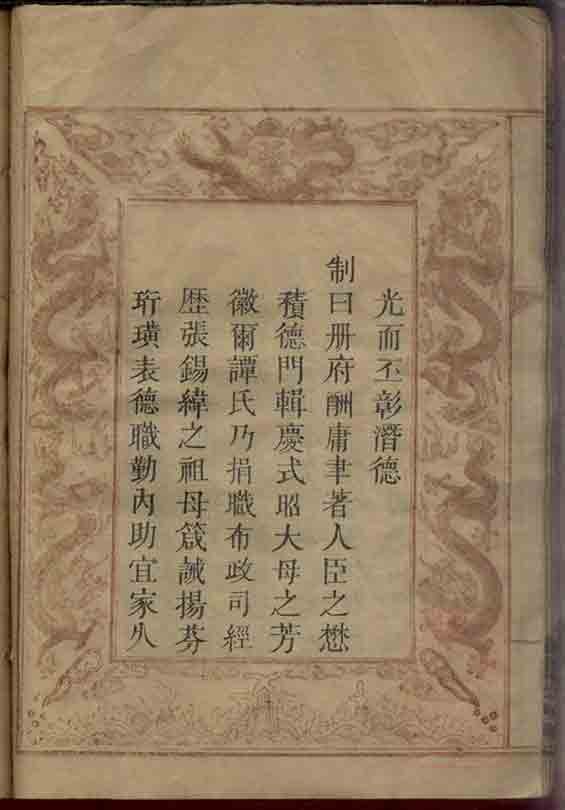 光而丕彰潛德
制曰冊府酬庸聿著人臣之懋
積德門輯慶式昭大母之芳
徽爾譚氏乃捐職布政司經
歷張錫緯之祖母箴誡揚芬
珩璜表德職勤內助宜家久